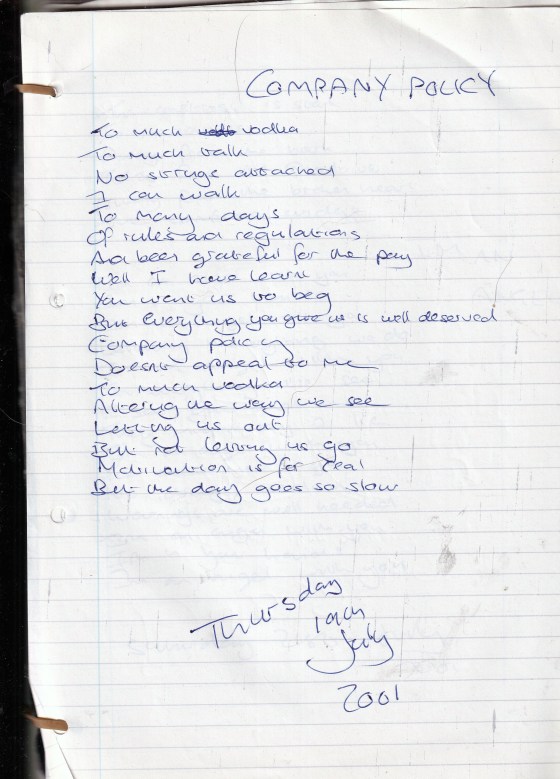 COMPANY POLICY
To much vodka
To much talk
No strings attached
I can walk
To many days
Of rules and regulations
And been grateful for the pay
Well I have learn
You want us to beg
But everything you give us is well deserved
Company policy
Doesnt appeal to me
To much vodka
Altering the way we see
Letting us out
But not letting us go
Motivation is for real
But the day goes so slow
Thursday
19th
July
2001